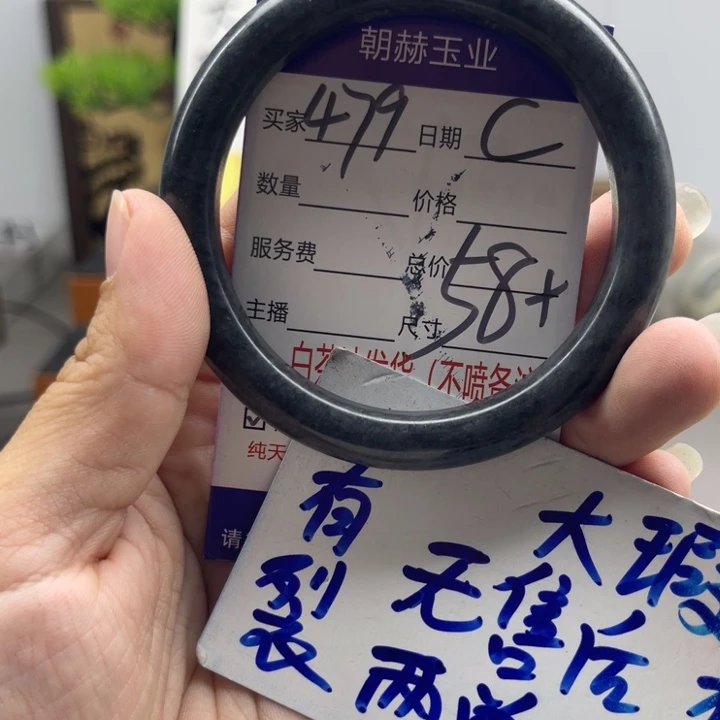 朝赫玉业
买家 479 日期 C
数量 价格
服务费 总价
主播 尺寸 58+
白茶 发货（不喷备
纯天
请
有 大瑕
裂 无售后
两